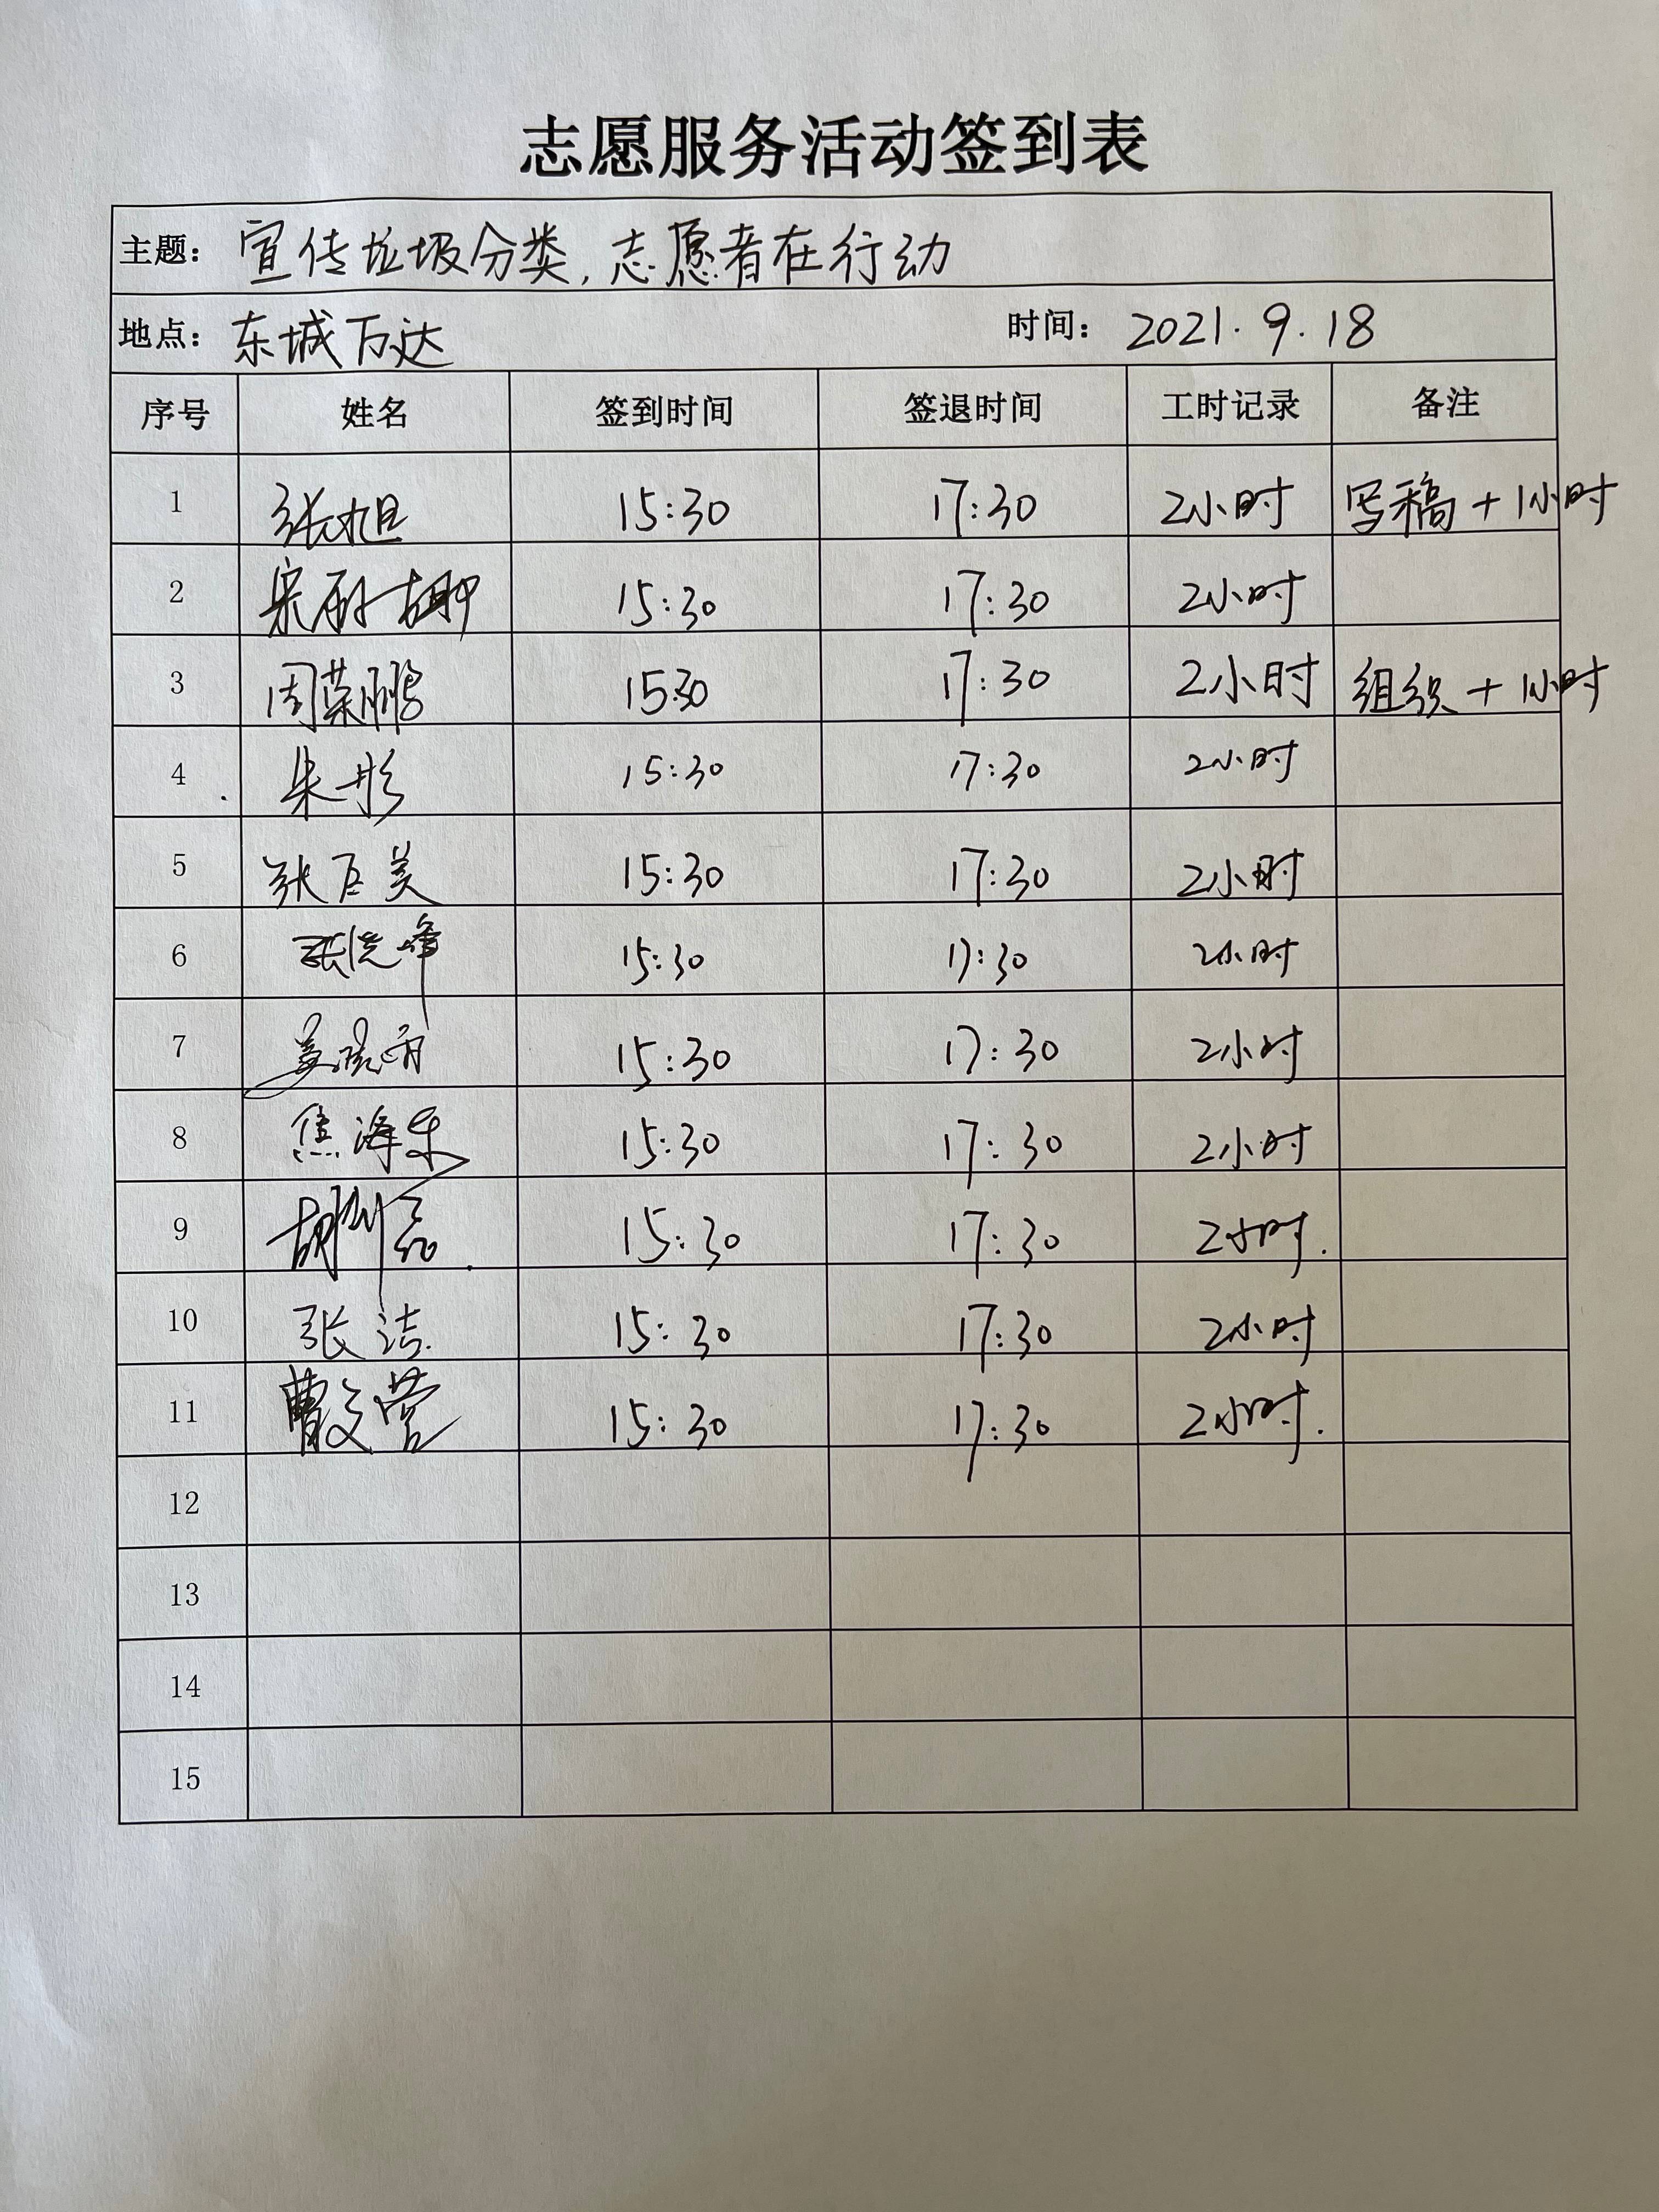 志愿服务活动签到表
主题: 宣传垃圾分类,志愿者在行动
地点: 东城万达 时间: 2021.9.18
序号 姓名 签到时间 签退时间 工时记录 备注
1 张旭 15:30 17:30 2小时 写稿+1小时
2 宋 15:30 17:30 2小时
3 周荣鹏 15:30 17:30 2小时 组织+1小时
4 朱彤 15:30 17:30 2小时
5 张百美 15:30 17:30 2小时
6 张先峰 15:30 17:30 2小时
7 姜 15:30 17:30 2小时
8 焦海东 15:30 17:30 2小时
9 胡 15:30 17:30 2小时.
10 张洁 15:30 17:30 2小时
11 曹文营 15:30 17:30 2小时.
12
13
14
15